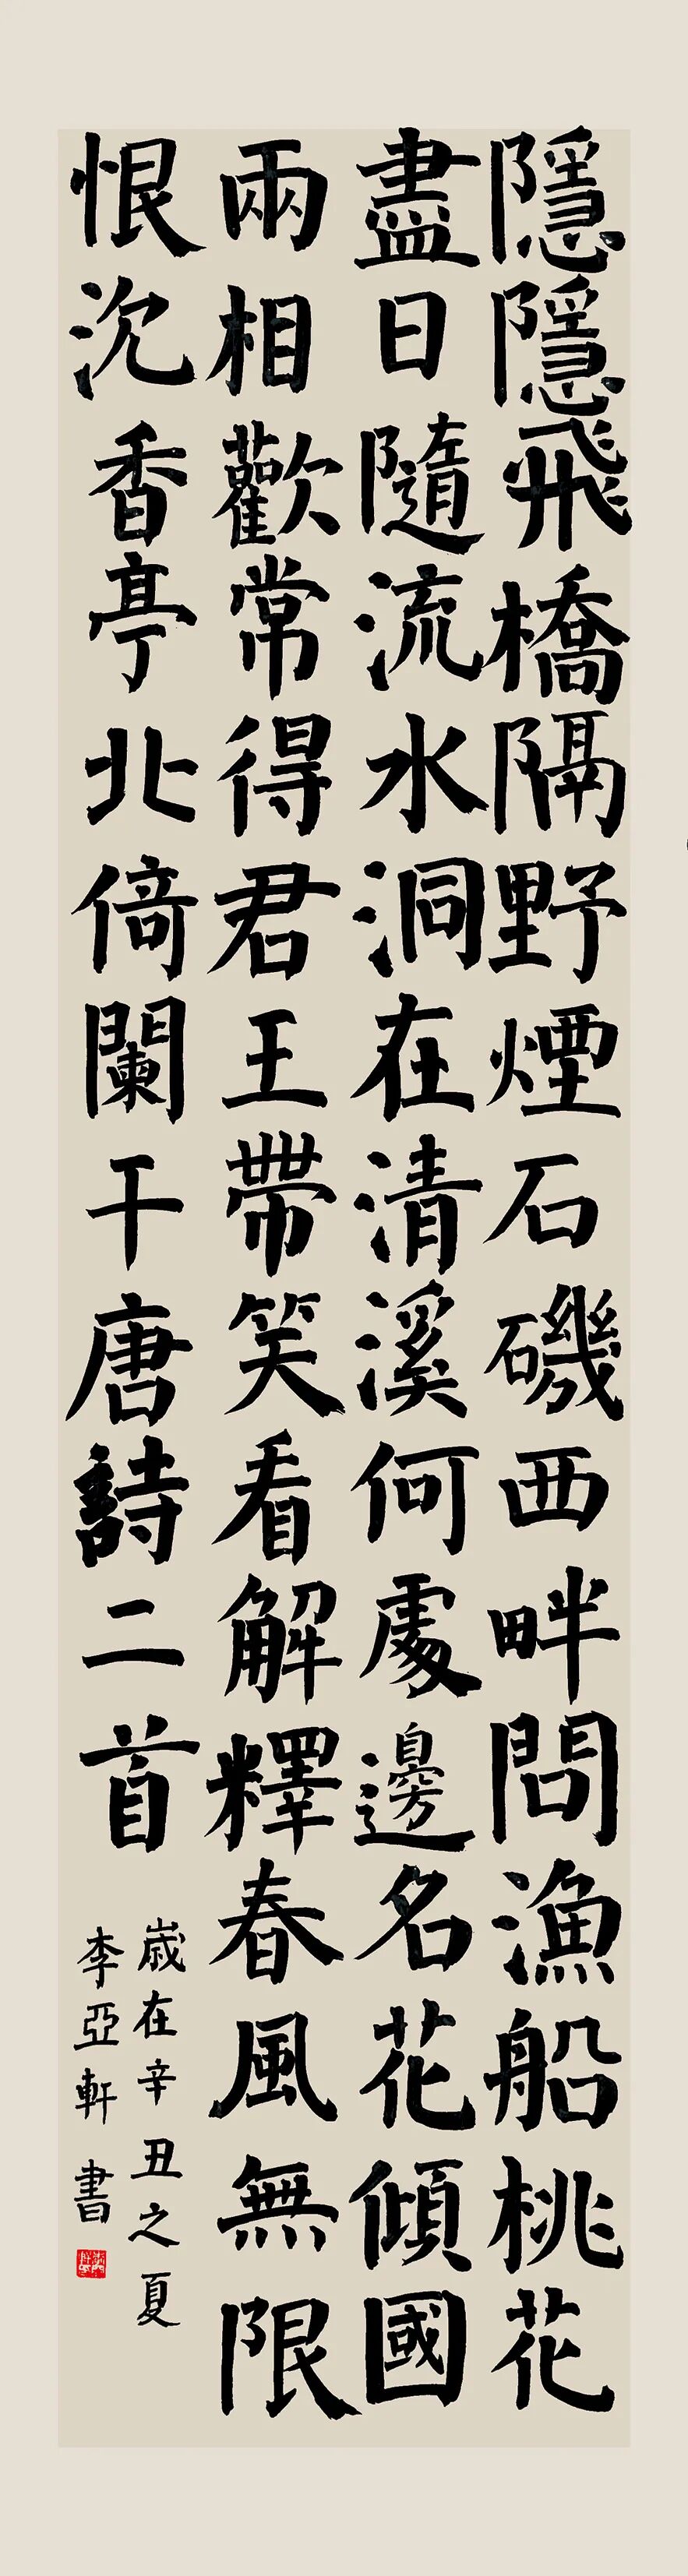 隱隱飛橋隔野煙石磯西畔問漁船桃花
盡日隨流水洞在清溪何處邊名花傾國
兩相歡常得君王帶笑看解釋春風無限
恨沈香亭北倚闌干唐詩二首
歲在辛丑之夏
李亞軒書